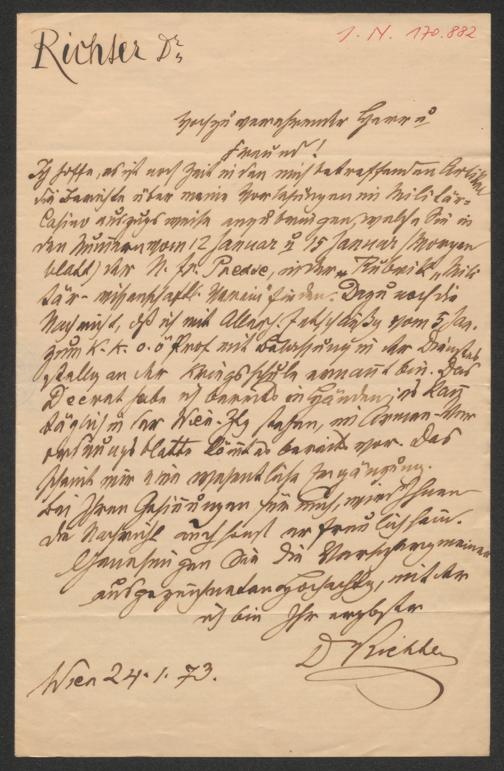 Richter Dr.
I. N. 170.882
Hochzuverehrender Herr u
Freund!
Ich hoffe, es ist noch Zeit in den mich betreffenden Artikel
die Berichte über meine Vorlesungen im Militär-
Casino auszugsweise anzubringen, welche Sie in
den Nummern vom 12 Januar u 15 Januar (Morgen
blatt) der N. fr. Presse, in der „Rubrik" „Mili
tär-wissenschaftl. Verein" finden. Dazu noch die
Nachricht, daß ich mit Allerh. Entschließg vom 5 Jan.
zum k. k. o. ö Prof mit Belassung in der Dienstes
stellg an der Kriegsschule ernannt bin. Das
Decret habe ich bereits in Händen; es kann
täglich in der Wien. Ztg stehen, im Armee-Ver
ordnungsblatte kommt es bereits vor. Das
scheint mir eine wesentliche Ergänzung.
Bei Ihren Gesinnungen für mich, wird Ihnen
die Nachricht auch sonst erfreulich sein.
Genehmigen Sie die Versicherg meiner
ausgezeichneten Hochachtg, mit der
ich bin Ihr ergebster
D Richter
Wien 24.1.73.